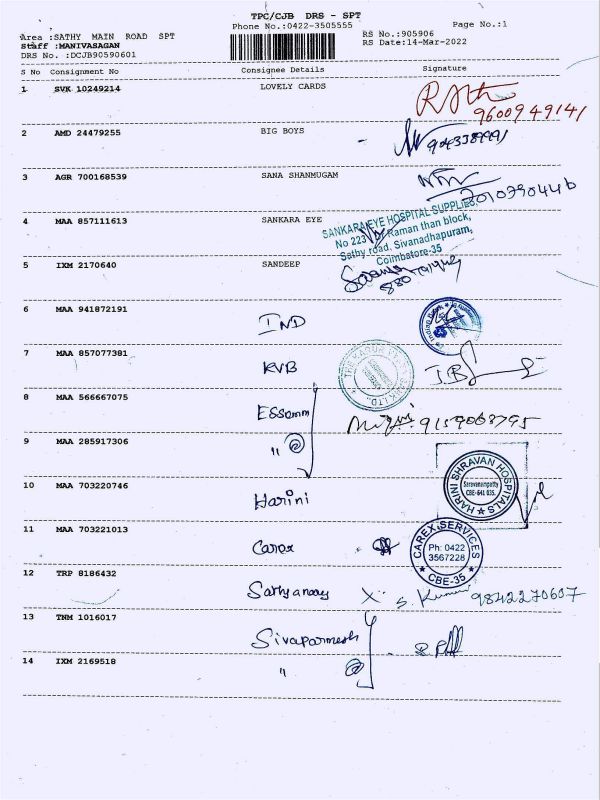 TPC/CJB DRS - SPT
Phone No.:0422-3505555
Page No.:1
Area :SATHY MAIN ROAD SPT
Staff :MANIVASAGAN
DRS No. :DCJB90590601
RS No.:905906
RS Date:14-Mar-2022
S No Consignment No Consignee Details Signature
1 SVK 10249214 LOVELY CARDS
9600949141
2 AMD 24479255 BIG BOYS
3 AGR 700168539 SANA SHANMUGAM
4 MAA 857111613 SANKARA EYE
SANKARA EYE HOSPITAL SUPPLIES,
No 223 Raman than block,
Sathy road, Sivanadhapuram,
Coimbatore-35
5 IXM 2170640 SANDEEP
6 MAA 941872191 IND
7 MAA 857077381 KVB
8 MAA 566667075 Essemm
9159068795
9 MAA 285917306 "
10 MAA 703220746 Harini
HARINI SHRAVAN HOSPITALS
Saravanampatty
CBE-641 035.
11 MAA 703221013 Carex
CAREX SERVICES
Ph: 0422
3567228
CBE-35
12 TRP 8186432 S. Kumar 9842270607
13 TNM 1016017
14 IXM 2169518 "